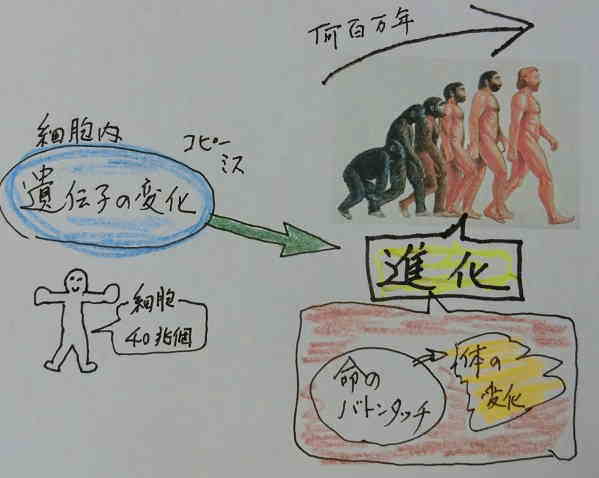 何百万年
細胞内
コピー
ミス
遺伝子の変化
進化
細胞
40兆個
命の
バトンタッチ
体の
変化